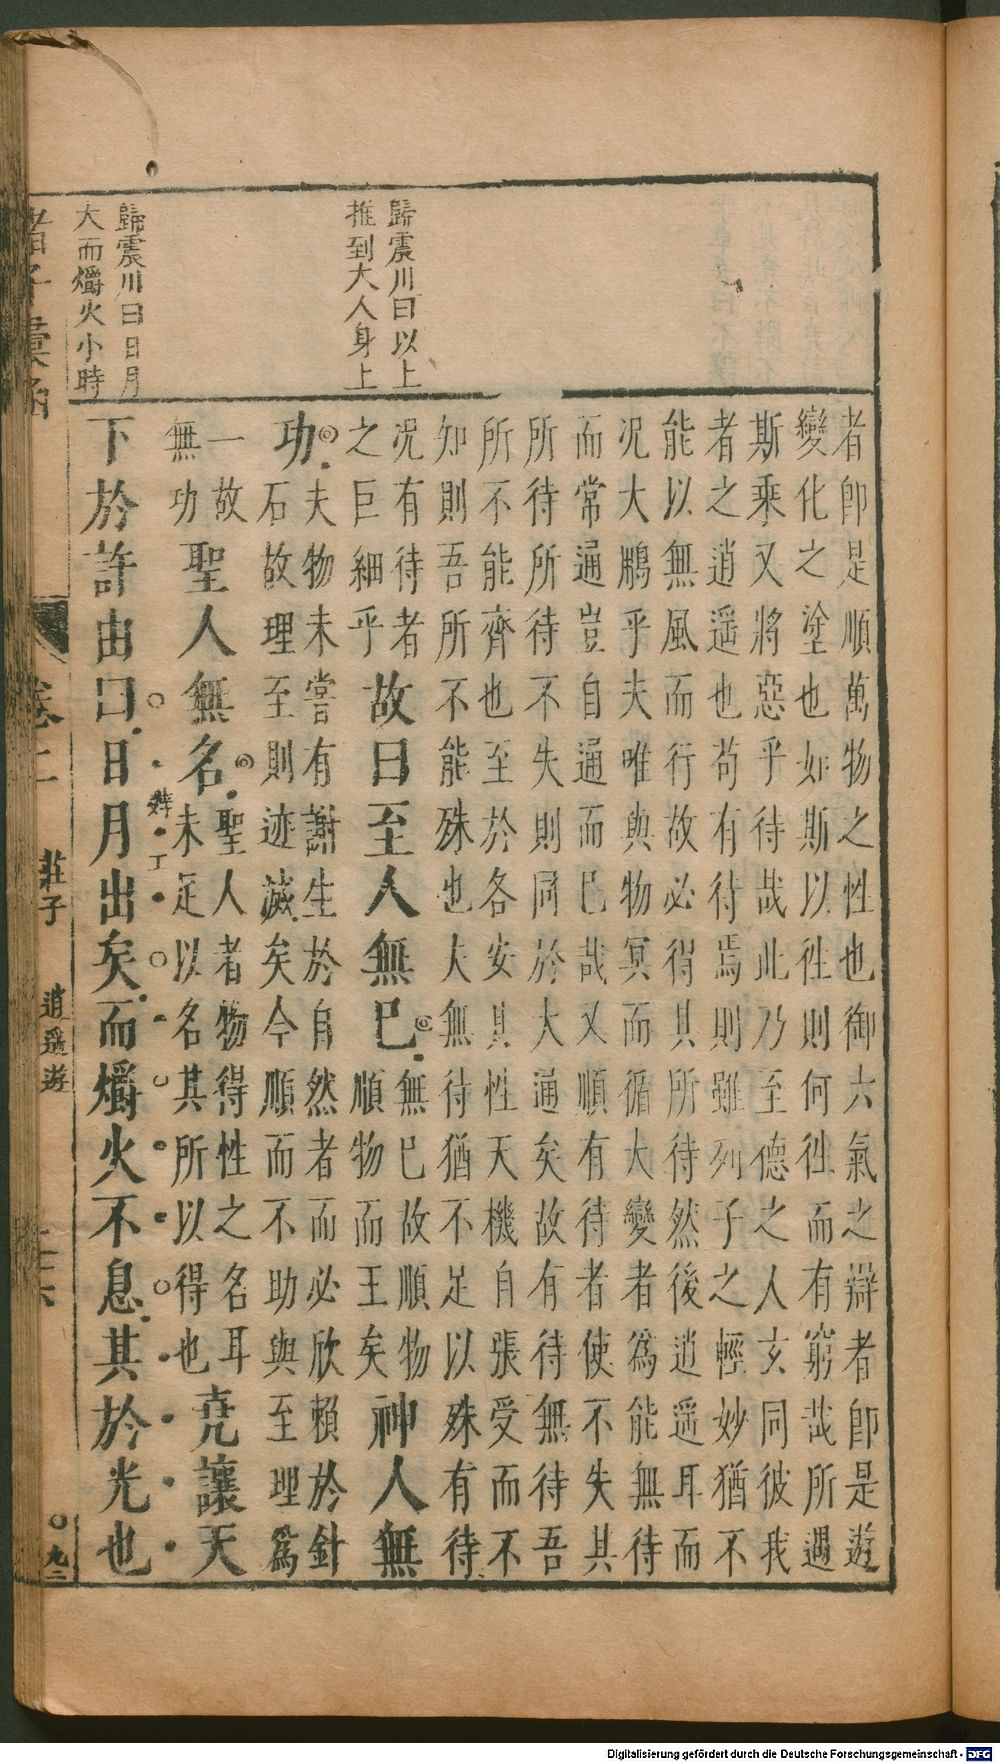 歸震川曰以上
推到大人身上
歸震川曰日月
大而爝火小時
者卽是順萬物之性也御六氣之辯者卽是遊
變化之塗也如斯以徃則何徃而有窮哉所遇
斯乘又將惡乎待哉此乃至德之人玄同彼我
者之逍遥也茍有待焉則雖列子之輕妙猶不
能以無風而行故必得其所待然後逍遥耳而
况大鵬乎夫唯與物冥而循大變者爲能無待
而常通豈自通而已哉又順有待者使不失其
所待所待不失則同於大通矣故有待無待吾
所不能齊也至於各安其性天機自張受而不
知則吾所不能殊也夫無待猶不足以殊有待
况有待者
之巨細乎
故曰至人無巳
無已故順物
順物而王矣
神人無
功
夫物未嘗有謝生於自然者而必欣賴於針
石故理至則迹滅矣今順而不助與至理爲
一故
無功
聖人無名
聖人者物得性之名耳
未足以名其所以得也
堯讓天
下於許由曰日月出矣而爝火不息其於光也
莊子
逍遥遊
Digitalisierung gefördert durch die Deutsche Forschungsgemeinschaft - DFG